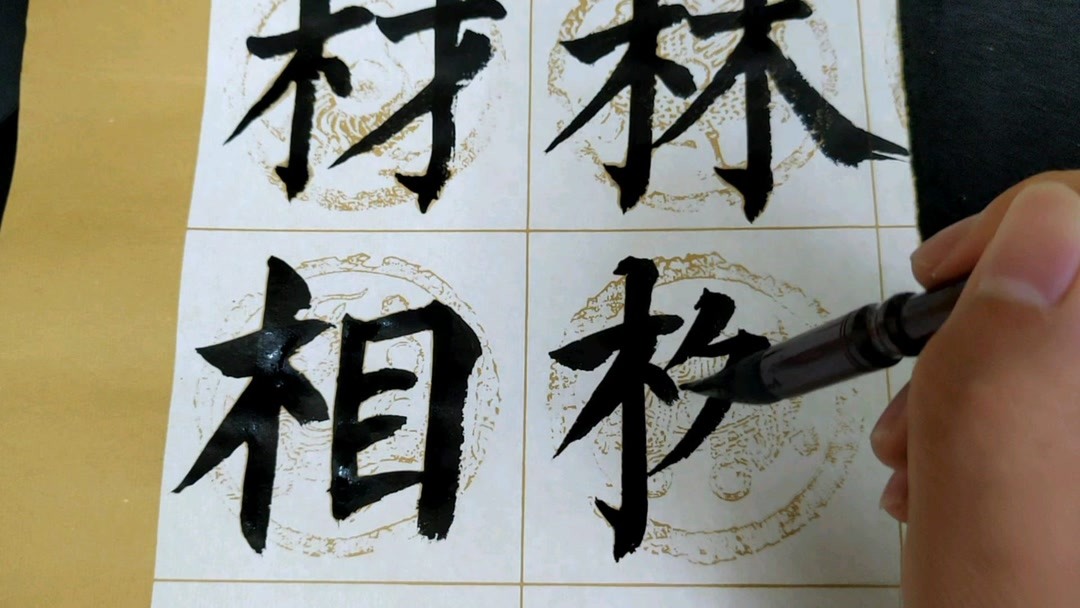 材林
相